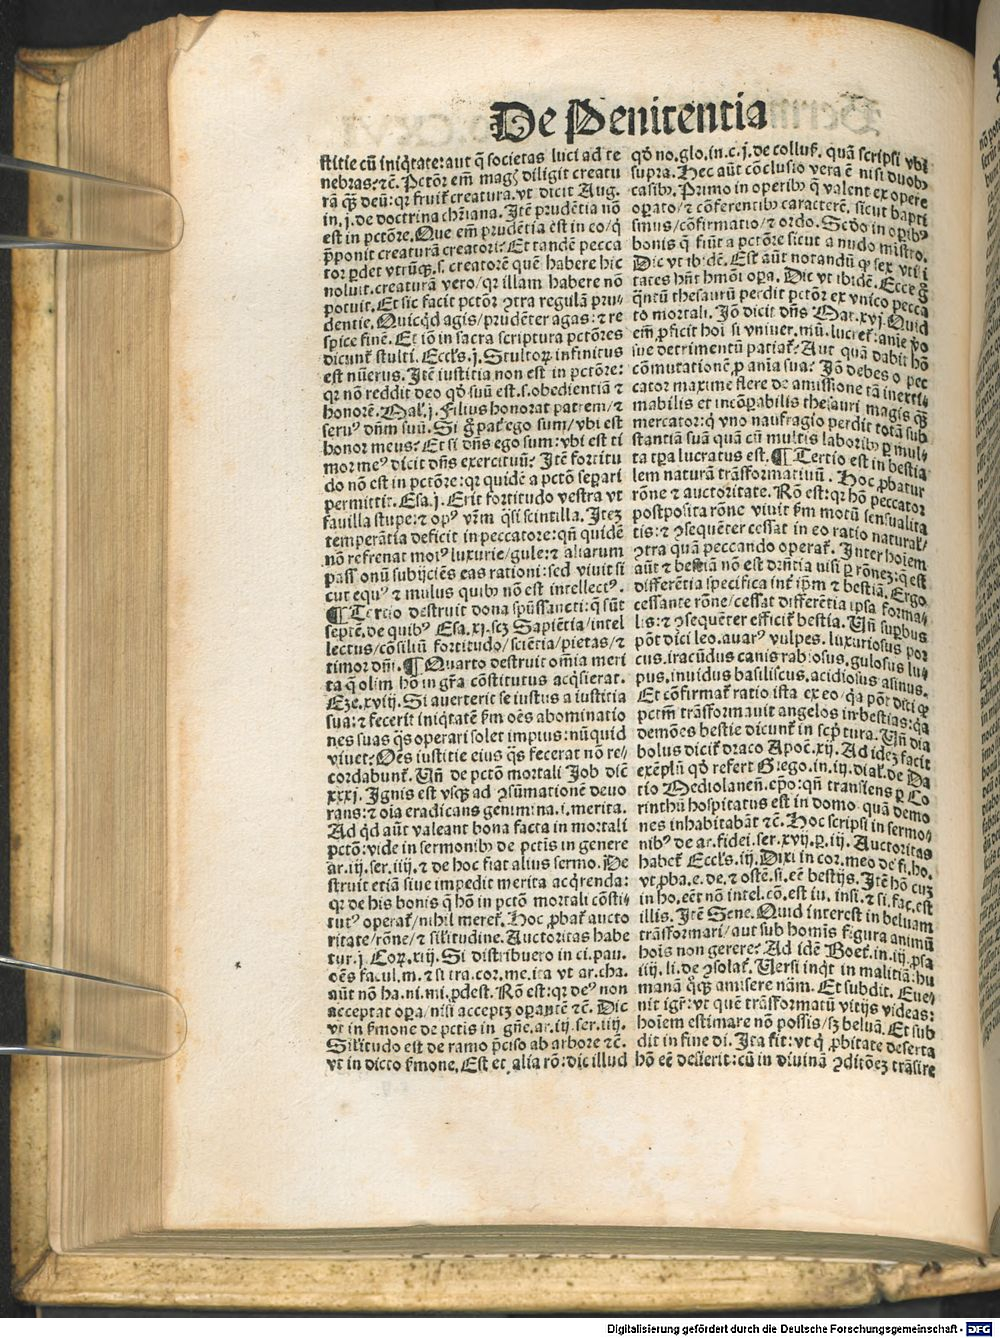 De Penitentia
stitie cũ iniq̃tate: aut q̃ societas luci ad te
nebras? ⁊c̃. Pctõr em̃ magꝭ diligit creatu
rã q̃ꝫ deũ: qr fruit̃ creatura. vt dicit Aug.
in. j. de doctrina chr̃iana. Itẽ prudẽtia nõ
est in pctõre. Que em̃ prudẽtia est in eo/q̇
p̃ponit creaturã creatori? Et tandẽ pecca
tor ꝑdet vtrũqꝫ. s. creatorẽ quẽ habere hic
noluit. creaturã vero/qr illam habere nõ
potuit. Et sic facit pctõr ꝯtra regulã pru⸗
dentie. Quicq̇d agis/prudẽter agas: ⁊ re
spice finẽ. Et iõ in sacra scriptura pctõres
dicunt̃ stulti. Eccl̃s. j. Stultoꝝ infinitus
est nũerus. Itẽ iustitia non est in pctõre:
qr nõ reddit deo qð suũ est. s. obedientiã ⁊
honorẽ. Mal̃. j. Filius honorat patrem/⁊
seruꝰ dñm suũ. Si g̊ pat̃ ego sum/vbi est
honor meus? Et si dñs ego sum: vbi est ti
mor meꝰ dicit dñs exercituũ? Itẽ fortitu
do nõ est in pctõre: qr quidẽ a pctõ seꝑari
permittit. Esa. j. Erit fortitudo vestra vt
fauilla stupe: ⁊ opꝰ vr̃m q̃si scintilla. Itez
temperãtia deficit in peccatore: qñ quidẽ
nõ refrenat motꝰ luxurie/gule: ⁊ aliarum
passionũ subijciẽs eas rationi: sed viuit si
cut equꝰ ⁊ mulus quibꝰ nõ est intellectꝰ.
¶ Tertio destruit dona spũssancti: q̃ sũt
septẽ. de quibꝰ Esa. xj. scꝫ Sapiẽtia/intel
lectus/cõsiliũ fortitudo/sciẽtia/pietas/⁊
timor dñi. ¶ Quarto destruit om̃ia meri
ta q̃ olim hõ in gr̃a cõstitutus acq̃sierat.
Eze. xviij. Si auerterit se iustus a iustitia
sua: ⁊ fecerit iniq̃tatẽ ẜm oẽs abominatio
nes suas q̃s operari solet impius: nũquid
viuet? Oẽs iustitie eius q̃s fecerat nõ re⸗
cordabunt̃. Uñ de pctõ mortali Job diẽ
xxxj. Ignis est vsqꝫ ad ꝯsũmationẽ deuo
rans: ⁊ oĩa eradicans genimina. i. merita.
Ad q̇d aũt valeant bona facta in mortali
pctõ: vide in sermonibꝰ de pctis in genere
ar. iij. ser. iiij. ⁊ de hoc fiat alius sermo. De
struit etiã siue impedit merita acq̇renda:
qr de his bonis q̃ hõ in pctõ mortali cõsti⸗
tutꝰ operat̃/nihil meret̃. Hoc ꝓbat̃ aucto
ritate/rõne/⁊ sil̃itudine. Auctoritas habe
tur. j. Coꝝ. xiij. Si distribuero in ci. pau.
oẽs facul. m. ⁊ si tra. cor. me. ita vt ar. cha.
aũt nõ ha. ni. mi. ꝓdest. Rõ est: qr deꝰ non
acceptat oꝑa/nisi acceptꝫ oꝑantẽ ⁊c̃. Dic
vt in ẜmone de pctis in gñe. ar. iij. ser. iiij.
Sil̃itudo est de ramo p̃ciso ab arbore ⁊c̃.
vt in dicto ẜmone. Est et alia rõ: dic illud
qð no. glo. in. c. j. de colluẜ. quã scripsi vbi
supra. Hec aũt cõclusio vera ẽ nisi duobꝰ
casibꝰ. Primo in operibꝰ q̃ valent ex opere
oꝑato/⁊ cõferentibꝰ caracterẽ. sicut bapti
smus/cõfirmatio/⁊ ordo. Scðo in oꝑibꝰ
bonis q̃ fiũt a pctõre sicut a nudo mĩstro.
Dic vt ibidẽ. Est aũt notandũ qꝫ sex vti i
tates hñt hmõi oꝑa. Dic vt ibidẽ. Ecce g̊
q̃ntũ thesaurũ perdit pctõr ex vnico pecca
to mortali. Iõ dicit dñs Mat. xvj. Quid
em̃ ꝓficit hoĩ si vniuer. mũ. lucret̃: aĩe ꝟo
sue detrimentũ patiat̃? Aut quã dabit hõ
cõmutationẽ ꝓ anĩa sua? Iõ debes o pec
cator maxime flere de amissione tã inexti⸗
mabilis et incõꝑabilis thesauri magis q̃ꝫ
mercator: q̇ vno naufragio perdit totã sub
stantiã suã quã cũ multis laboribꝰ ꝑ mul⸗
ta tꝑa lucratus est. ¶ Tertio est in bestia
lem naturã trãsformatiuũ. Hoc ꝓbatur
rõne ⁊ auctoritate. Rõ est: qr hõ peccator
postposita rõne viuit ẜm motũ sensualita
tis: ⁊ ꝯsequẽter cessat in eo ratio natural̃/
ꝯtra quã peccando operat̃. Inter hoĩem
aũt ⁊ bestiã nõ est dr̃ntia nisi ꝑ rõneꝫ: q̃ est
differẽtia specifica int̃ ip̃m ⁊ bestiã. Ergo
cessante rõne/cessat differẽtia ipsa forma⸗
lis: ⁊ ꝯsequẽter efficit̃ bestia. Uñ suꝑbus
põt dici leo. auarꝰ vulpes. luxuriosus por
cus. iracũdus canis rabiosus. gulosus lu⸗
pus. inuidus basiliscus. acidiosus asinus.
Et cõfirmat̃ ratio ista ex eo/q̇a põt dici qꝫ
pctm̃ trãsformauit angelos in bestias: q̇a
demões bestie dicunt̃ in scp̃tura. Uñ dia
bolus dicit̃ draco Apoc̃. xij. Ad ideꝫ facit
exẽplũ qð refert Grego. in. iij. dial̃. de Da
tio Mediolaneñ. ep̃o: qñ transiens ꝑ Co
rinthũ hospitatus est in domo quã demo
nes inhabitabãt ⁊c̃. Hoc scripsi in sermo⸗
nibꝰ de ar. fidei. ser. xvij. p. iij. Auctoritas
habet̃ Eccl̃s. iij. Dixi in cor. meo de fi. ho.
vt ꝓba. e. de. ⁊ ostẽ. si. eẽ bestijs. Itẽ hõ cuꝫ
in ho. eẽt nõ intel. cõ. est iu. insi. ⁊ si. fac. est
illis. Itẽ Sene. Quid interest in beluam
trãsformari/aut sub homĩs figura animũ
hoĩs non gerere? Ad idẽ Boet̃. in. iij. ꝓsa
iiij. li. de ꝯsolat̃. Uersi inq̇t in malitiã: hu
manã q̇qꝫ amisere nãm. Et subdit. Eue⸗
nit igr̃: vt quẽ trãsformatũ vitijs videas:
hoĩem estimare nõ possis/sꝫ beluã. Et sub
dit in fine di. Ita fit: vt q̇ ꝓbitate deserta
hõ eẽ desierit: cũ in diuinã ꝯditõeꝫ trãsire
Digitalisierung gefördert durch die Deutsche Forschungsgemeinschaft - DFG